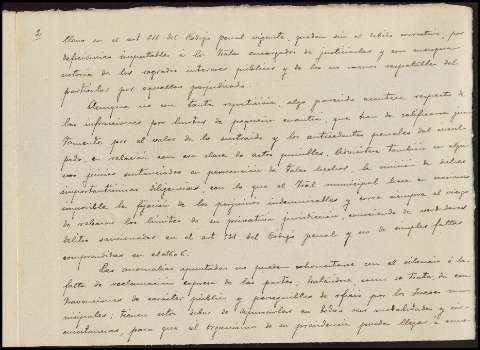 2
llena en el art 611 del Código penal vigente, quedan sin el debido correctivo, por
deficiencias imputables á los Trales encargados de justiciarlas y con menguas
notoria de los sagrados intereses públicos y de los no menos respetables del
particular por aquellas perjudicado.
Aunque no con tanta repetición, algo parecido acontece respecto de
las infracciones por hurtos de pequeña cuantía, que han de calificarse jun
tamente por el valor de lo sustraido y los antecedentes penales del incul-
pado, en relación con esa clase de actos punibles. Adviértese también en algu
nos juicios sustanciados en persecución de tales hechos, la omisión de dichas
importantísimas diligencias, con lo que el Tral municipal hace en ocasiones
imposible la fijación de los perjuicios indemnizables y corre siempre el riesgo
de rebasar los límites de su privativa jurisdicción, conociendo de verdaderos
delitos sancionados en el art del Código penal y no de simples faltas
comprendidas en el
Las anomalías apuntadas no pueden cohonestarse con el silencio ó la
falta de reclamación expresa de las partes, tratándose como se trata de con
travenciones de carácter público y perseguibles de oficio por los Jueces mu
nicipales; tienen este deber de esclarecerlas en todas sus modalidades y cir-
cunstancias, para que el organismo de su presidencia pueda llegar á cono-